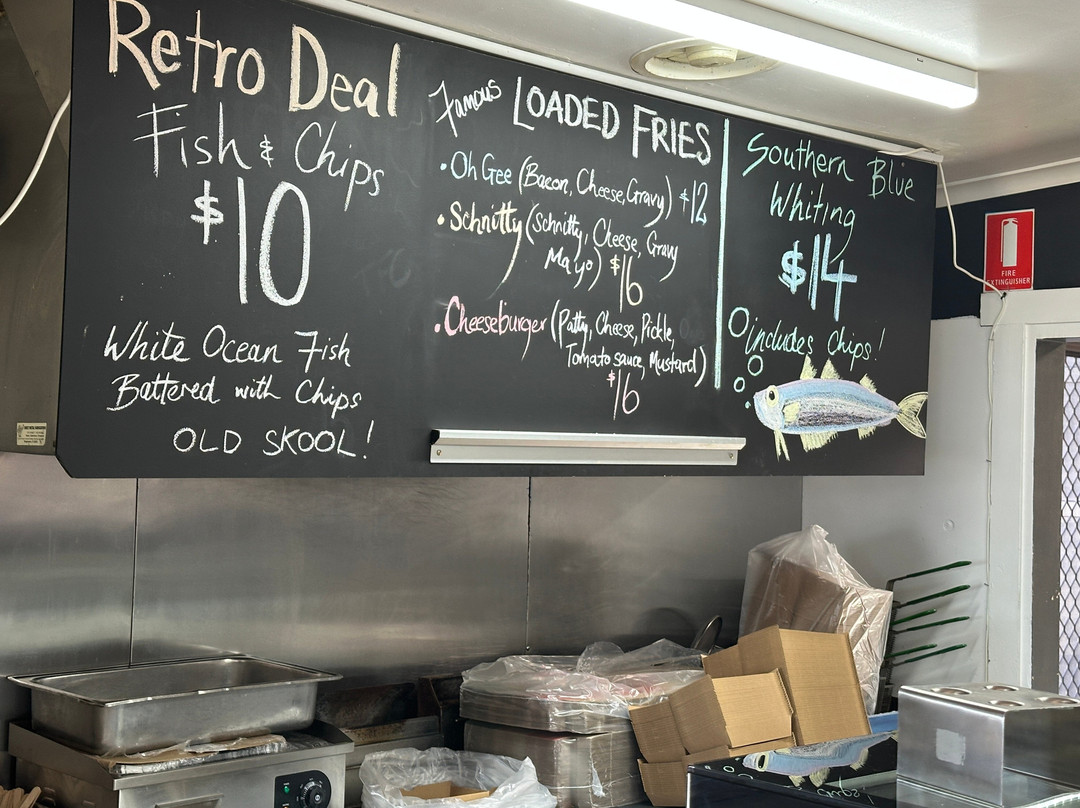 Retro Deal
Fish & Chips
$10
White Ocean Fish
Battered with Chips
OLD SKOOL!
Famous LOADED FRIES
• Oh Gee (Bacon, Cheese, Gravy) $12
• Schnitty (Schnitty, Cheese, Gravy
Mayo) $16
• Cheeseburger (Patty, Cheese, Pickle,
Tomato sauce, Mustard)
$16
Southern Blue
Whiting
$14
includes chips!
FIRE
EXTINGUISHER